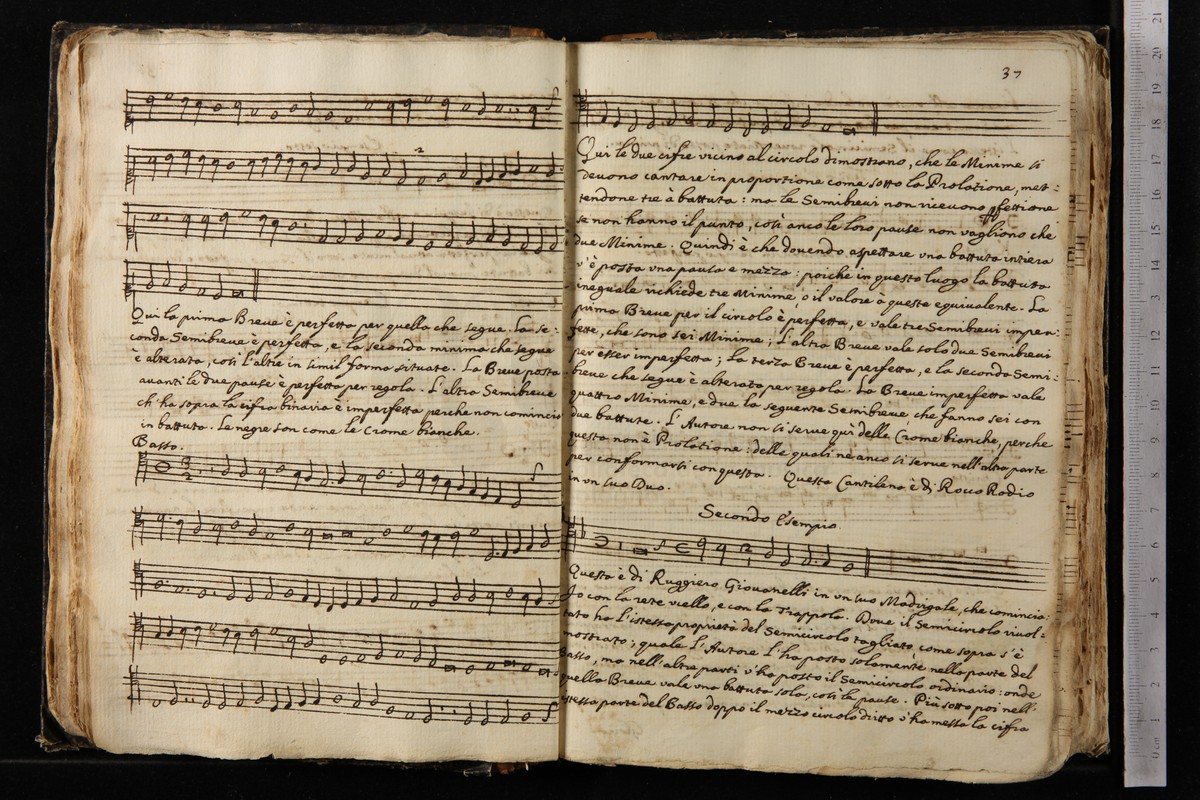 Qui la prima Breue è perfetta per quella che segue. La se:
conda Semibreue è perfetta, e la seconda minima che segue
è alterata, così l'altre in simil forma situate. La Breue posta
auanti le due pause è perfetta per regola. L'altra Semibreue
ch'ha sopra la cifra binaria è imperfetta perche non comincia
in battuta. Le negre son come le Crome bianche.
Basso.
3
2
37
Qui le due cifre vicino al circolo dimostrano, che le Minime si
deuono cantare in proportione come sotto la Prolatione, met:
tendone tre à battuta: ma le Semibreui non riceuono pfettione
se non hanno il punto, così anco le loro pause non vagliono che
due Minime. Quindi è che douendo aspettare vna battuta intiera
v'è posta vna pausa e mezza: poiche in questo luogo la battuta
ineguale richiede tre Minime, o il valore à queste equiualente. La
prima Breue per il circolo è perfetta, e vale tre Semibreui imper:
fette, che sono sei Minime; L'altra Breue vale solo due Semibreui
per esser imperfetta; La terza Breue è perfetta, e la seconda Semi:
breue che segue è alterata per regola. La Breue imperfetta vale
quattro Minime, e due la seguente Semibreue, che fanno sei con
due battute. L'Autore non si serue quì delle Crome bianche, perche
questa non è Prolatione: delle quali ne anco si serue nell'altra parte
per conformarsi con questa. Questa Cantilena è di Rocco Rodio
in vn suo Duo.
Secondo Esempio
Questo è di Ruggiero Giouanelli in vn suo Madrigale, che comincia:
Io con la rete vcello, e con la Trappola. Doue il Semicircolo riuol:
tato ha l'istessa proprietà del Semicircolo tagliato, come sopra s'è
mostrato; quale l'Autore l'ha posto solamente nella parte del
Basso, ma nell'altre parti v'ha posto il Semicircolo ordinario: onde
quella Breue vale vna battuta sola, così la pausa. Più sotto poi nell'
istessa parte del Basso doppo il mezzo circolo dritto v'ha messa la cifra